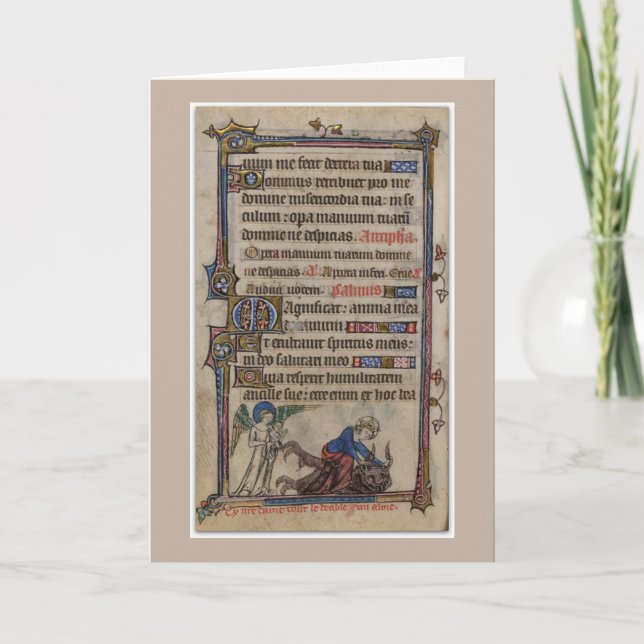 uum me fecit dextera tua
Dominus retribuet pro me
domine misericordia tua: in se
culum: opera manuum tuarum
domine ne despicias. Antipha.
Opera manuum tuarum domine
ne despicias. A A porta inferi. Erue A
Audiui uocem. Psalmus
Magnificat: anima mea
dominum
Et exultauit spiritus meus:
in deo salutari meo
Quia respexit humilitatem
ancille sue: ecce enim ex hoc bea
Cy nre dame tout le deable un alme.